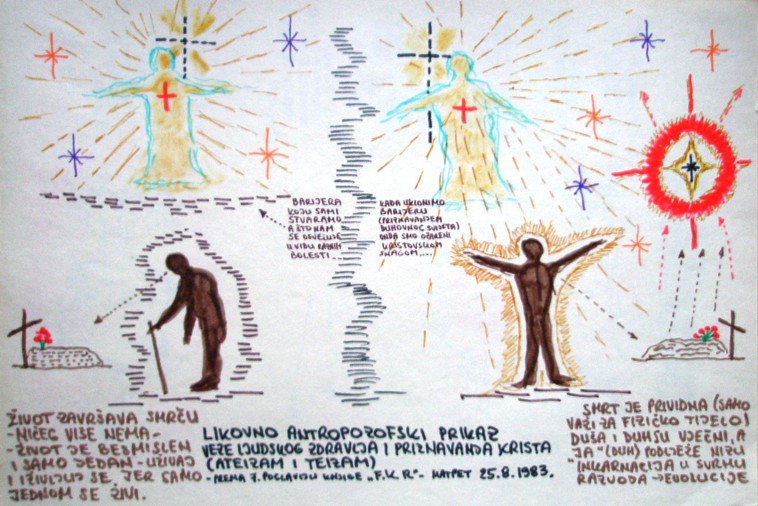 BARIJERA
KOJU SAMI
STVARAMO,
A ŠTO NAM
SE ODVEJUJE
U VIDU RAZNIH
BOLESTI...
KADA UKLONIMO
BARIJERU
(PRIZNAVANJEM
DUHOVNOG SVIJETA)
ONDA SMO OZARENI
KRISTOVSKOM
SNAGOM....
ŽIVOT ZAVRŠAVA SMRČU
-NIČEG VIŠE NEMA-
-ŽIVOT JE BESMISLEN
I SAMO JEDAN-UŽIVAJ
I IŽIVLJUJ SE, JER SAMO
JEDNOM SE ŽIVI.
LIKOVNO ANTROPOZOFSKI PRIKAZ
VEZE LJUDSKOG ZDRAVLJA I PRIZNAVANJA KRISTA
(ATEIZAM I TEIZAM)
-PREMA 7. POGLAVLJU KNJIGE "F.K.R."- KATPET 25.8.1983.
SMRT JE PRIVIDNA (SAMO
VAŽI ZA FIZIČKO TIJELO)
DUŠA I DUH SU VJEČNI, A
"JA" (DUH) PODLJEŽE NIZU
INKARNACIJA U SVRHU
RAZVOJA → EVOLUCIJE